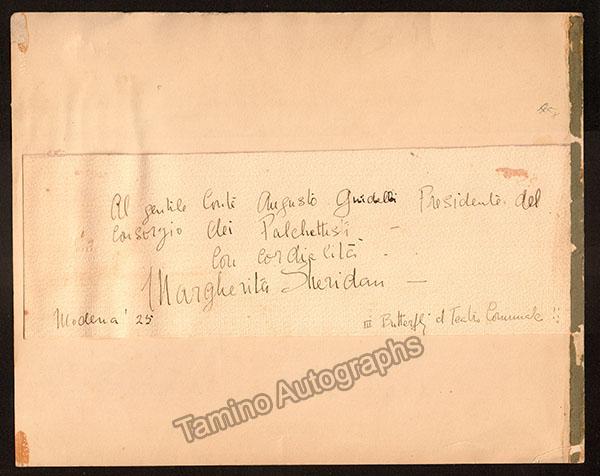 Al gentile Conte Augusto Guidelli Presidente del
Consorzio dei Palchettisti –
Con cordialità –
Margherita Sheridan –
Modena '25
III Butterfly al Teatro Comunale
Tamino Autographs